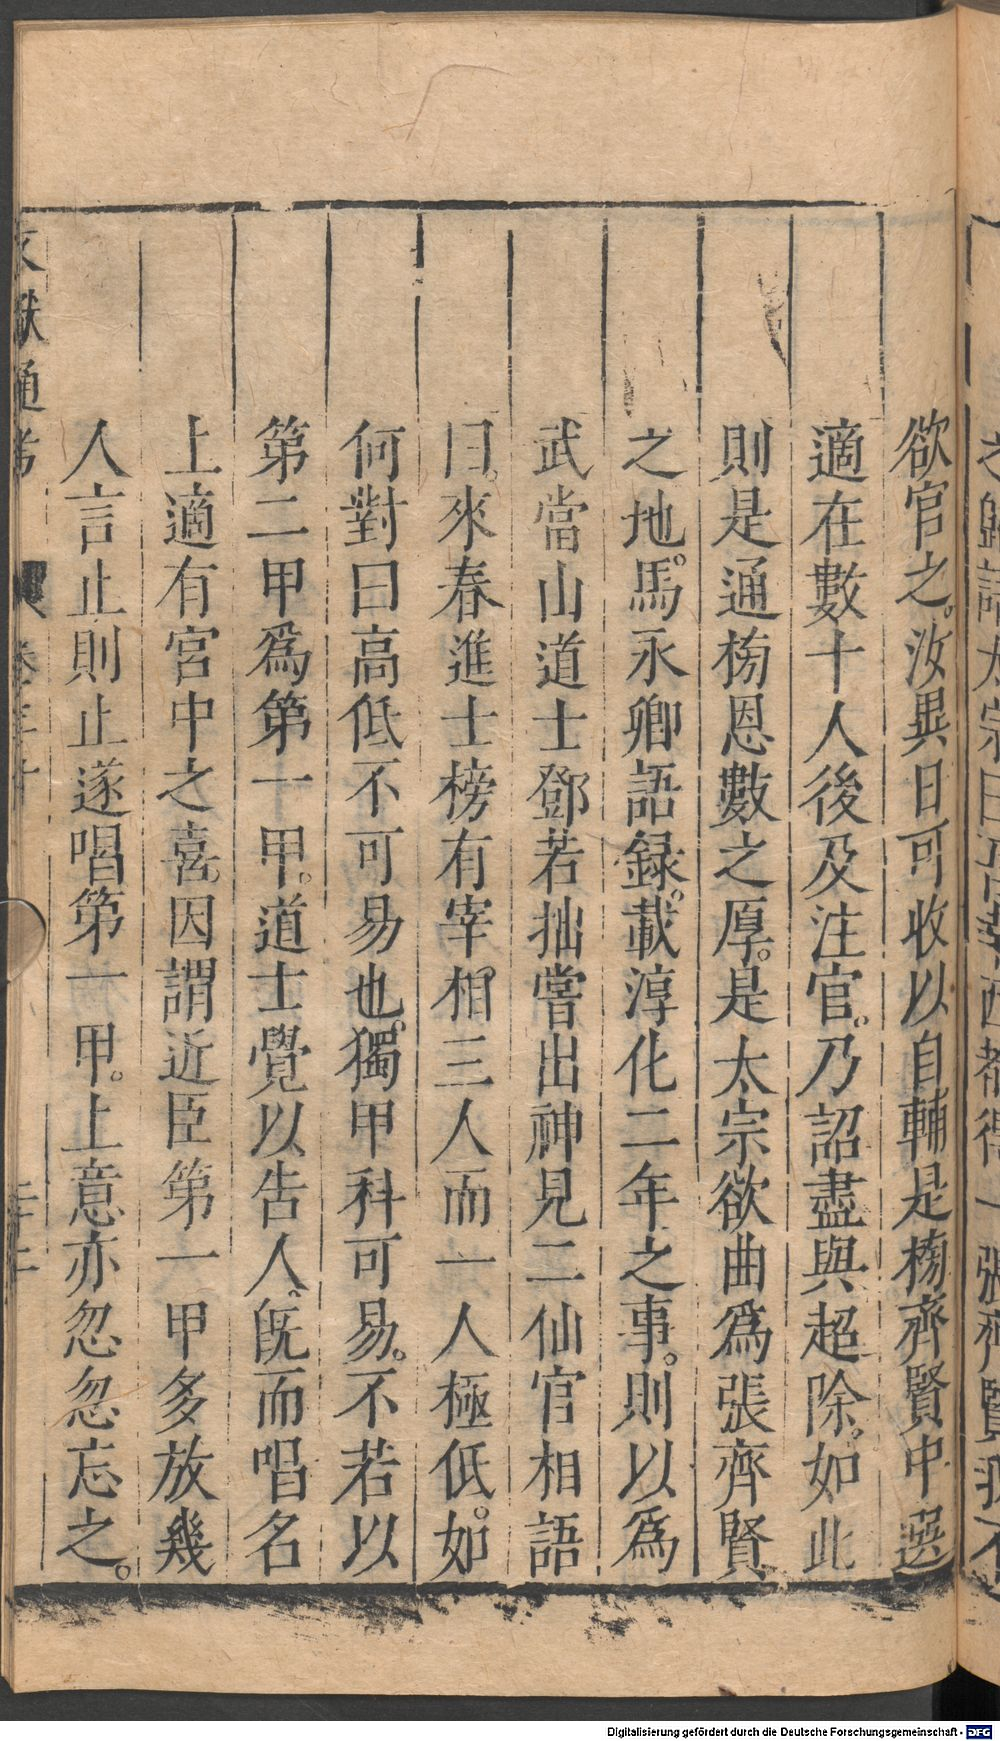 欲官之。汝異日可收以自輔是榜齊賢中選
適在數十人後及注官。乃詔盡與超除。如此
則是通榜恩數之厚。是太宗欲曲爲張齊賢
之地。馬永卿語録。載淳化二年之事。則以爲
武當山道士鄧若拙嘗出神見二仙官相語
曰。來春進士榜有宰相三人而一人極低。如
何對曰高低不可易也。獨甲科可易。不若以
第二甲爲第一甲。道士覺以告人。旣而唱名
上適有宮中之喜。因謂近臣第一甲多放幾
人言止則止遂唱第一甲。上意亦忽忽忘之。
文獻通考 卷三十 二十二
Digitalisierung gefördert durch die Deutsche Forschungsgemeinschaft - DFG